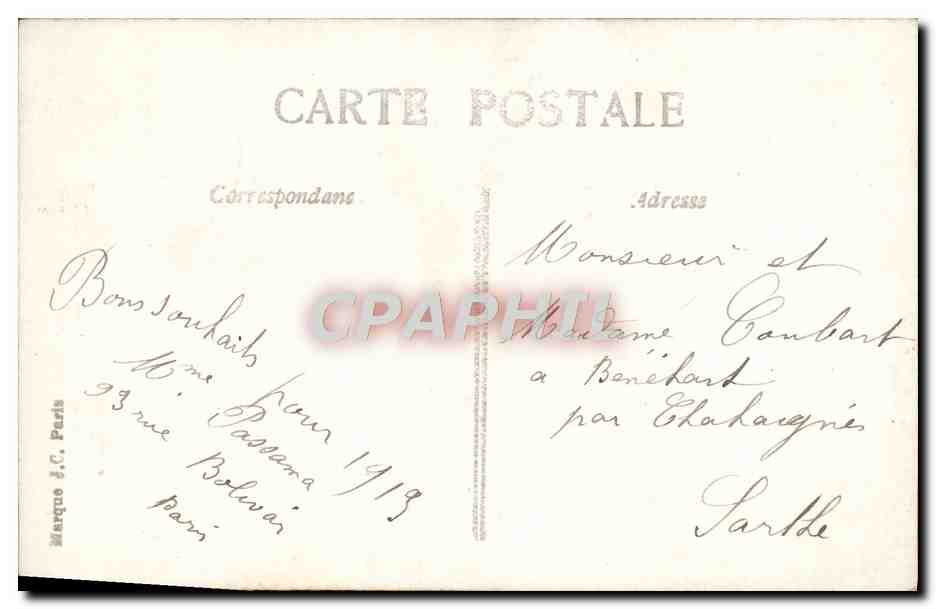 CARTE POSTALE
Correspondanc
Adresse
Bons souhaits pour 1913
Mme Passama
93 rue Bolivar
Paris
Monsieur et
Madame Coubart
a Bénéhart
par Chahaignes
Sarthe
Marque J.C. Paris
CPAPHIL